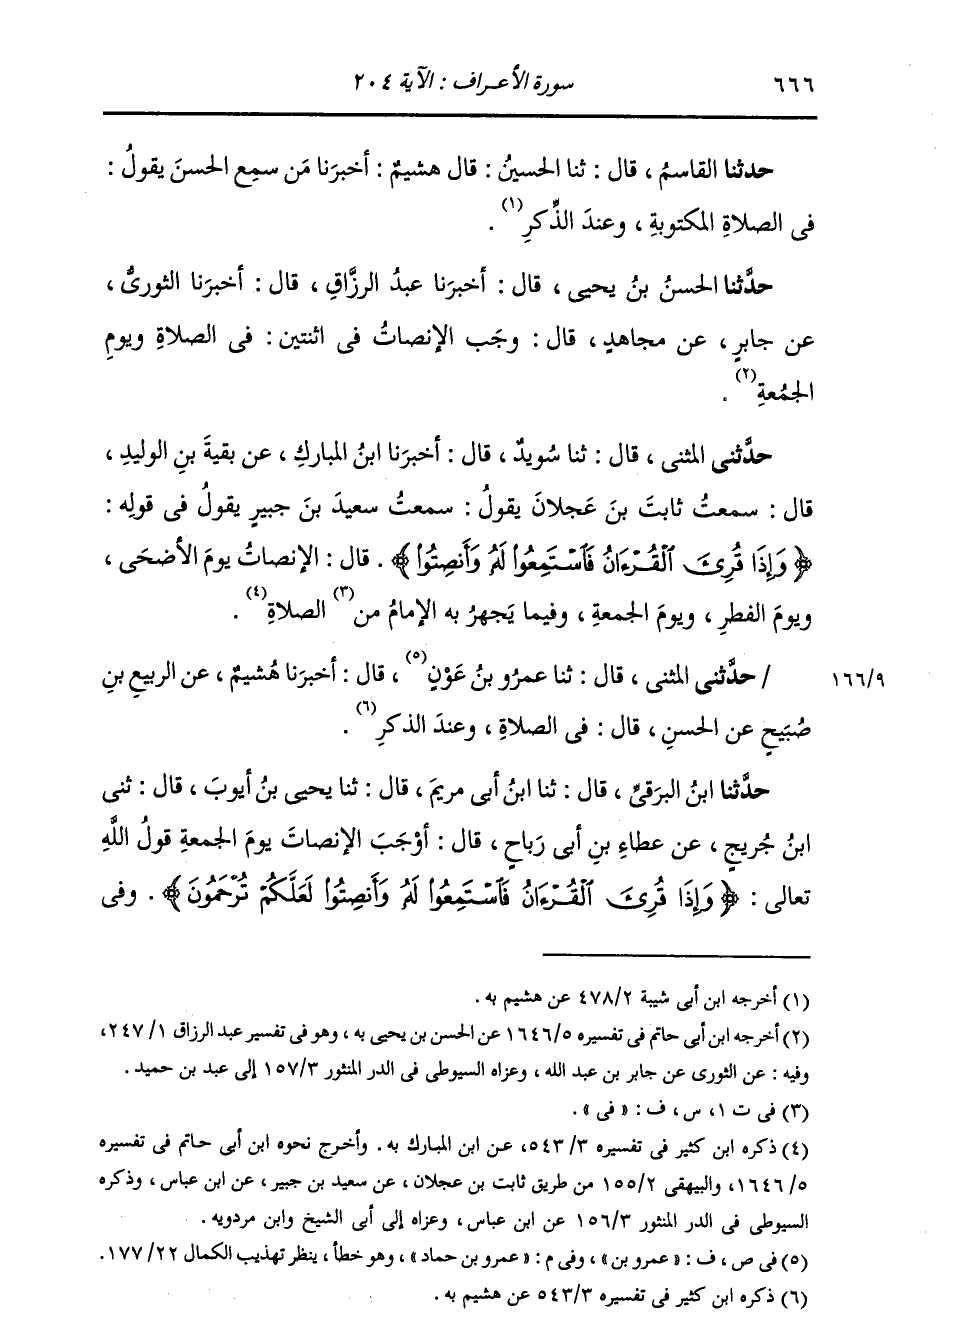 ٦٦٦ سورة الأعراف : الآية ٢٠٤
حدثنا القاسمُ ، قال : ثنا الحسينُ : قال هشيمٌ : أخبرَنا مَن سمِع الحسنَ يقولُ :
فى الصلاةِ المكتوبةِ ، وعندَ الذِّكرِ(١) .
حدَّثنا الحسنُ بنُ يحيى ، قال : أخبرَنا عبدُ الرزَّاقِ ، قال : أخبرَنا الثورىُّ ،
عن جابرٍ ، عن مجاهدٍ ، قال : وجَب الإنصاتُ فى اثنتين : فى الصلاةِ ويومِ
الجمُعةِ(٢) .
حدَّثنى المثنى ، قال : ثنا سُويدٌ ، قال : أخبرَنا ابنُ المباركِ ، عن بقيةَ بنِ الوليدِ ،
قال : سمعتُ ثابتَ بنَ عَجلانَ يقولُ : سمعتُ سعيدَ بنَ جبيرٍ يقولُ فى قولِه :
﴿ وَإِذَا قُرِئَ ٱلْقُرْءَانُ فَٱسْتَمِعُوا۟ لَهُۥ وَأَنصِتُوا۟ ﴾ . قال : الإنصاتُ يومَ الأضحَى ،
ويومَ الفطرِ ، ويومَ الجمعةِ ، وفيما يَجهرُ به الإمامُ من(٣) الصلاةِ(٤) .
١٦٦/٩ / حدَّثنى المثنى ، قال : ثنا عمرُو بنُ عَوْنٍ(٥) ، قال : أخبرَنا هُشيمٌ ، عن الربيعِ بنِ
صُبَيحٍ عن الحسنِ ، قال : فى الصلاةِ ، وعندَ الذكرِ(٦) .
حدَّثنا ابنُ البرَقىِّ ، قال : ثنا ابنُ أبى مريمَ ، قال : ثنا يحيى بنُ أيوبَ ، قال : ثنى
ابنُ جُريجٍ ، عن عطاءِ بنِ أبى رَباحٍ ، قال : أوْجَبَ الإنصاتَ يومَ الجمعةِ قولُ اللَّهِ
تعالى : ﴿ وَإِذَا قُرِئَ ٱلْقُرْءَانُ فَٱسْتَمِعُوا۟ لَهُۥ وَأَنصِتُوا۟ لَعَلَّكُمْ تُرْحَمُونَ ﴾ . وفى
(١) أخرجه ابن أبى شيبة ٤٧٨/٢ عن هشيم به .
(٢) أخرجه ابن أبى حاتم فى تفسيره ١٦٤٦/٥ عن الحسن بن يحيى به ، وهو فى تفسير عبد الرزاق ٢٤٧/١،
وفيه : عن الثورى عن جابر بن عبد الله ، وعزاه السيوطى فى الدر المنثور ١٥٧/٣ إلى عبد بن حميد .
(٣) فى ت ١، س ، ف : « فى » .
(٤) ذكره ابن كثير فى تفسيره ٥٤٣/٣، عن ابن المبارك به . وأخرج نحوه ابن أبى حاتم فى تفسيره
١٦٤٦/٥، والبيهقى ١٥٥/٢ من طريق ثابت بن عجلان ، عن سعيد بن جبير ، عن ابن عباس ، وذكره
السيوطى فى الدر المنثور ١٥٦/٣ عن ابن عباس ، وعزاه إلى أبى الشيخ وابن مردويه .
(٥) فى ص ، ف : « عمرو بن » ، وفى م : « عمرو بن حماد » ، وهو خطأ ، ينظر تهذيب الكمال ١٧٧/٢٢.
(٦) ذكره ابن كثير فى تفسيره ٥٤٣/٣ عن هشيم به .